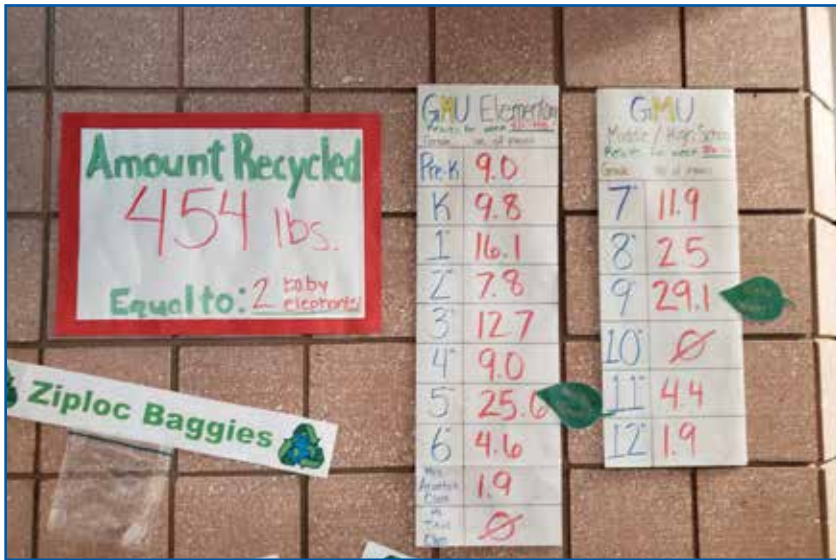 Amount Recycled
454 lbs.
Equal to: 2 baby
elephants!
Ziploc Baggies
GMU Elementary
Results for week
Grade no. of pounds
Pre-K 9.0
K 9.8
1st 16.1
2nd 7.8
3rd 12.7
4th 9.0
5th 25.6
6th 4.6
Mrs.
Class 1.9
Class Ø
GMU
Middle / High School
Results for week
Grade no. of pounds
7th 11.9
8th 25
9th 29.1
10th Ø
11th 4.4
12th 1.9